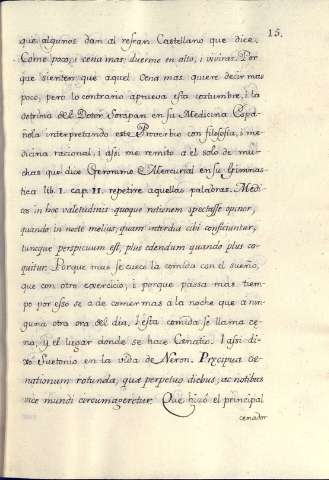 15.
que algunos dan al refran Castellano que dice.
Come poco, i cena mas, duerme en alto, i viviras. Por
que sienten que aquel Cena mas, quiere decir mas
poco, pero lo contrario aprueva esta costumbre, i la
dotrina del Dotor Sorapan en su Medicina Espa-
ñola interpretando este Proverbio con filosofia, i me-
dicina racional, i assi me remito a el solo de mu-
chas que dice Geronimo Mercurial en su Gimnas-
tica lib. I. cap. II. repetire aquellas palabras. Medi-
cos in hoc valetudinis quoque rationem spectasse opinor,
quando in nocte melius, quam interdiu cibi conficiuntur,
tuncque perspicuum est, plus edendum quando plus co-
quitur. Porque mas se cuece la comida con el sueño,
que con otro exercicio, i porque passa mas tiem-
po por esso se a de comer mas a la noche que a nin-
guna otra ora del dia. I esta comida se llama ce-
na, y el lugar donde se hace Cenatio. I assi di-
xo Suetonio en la vida de Neron. Præcipua ce-
nationum rotunda, quæ perpetuo diebus, ac notibus
vice mundi circumageretur. Que hizo el principal
cenador